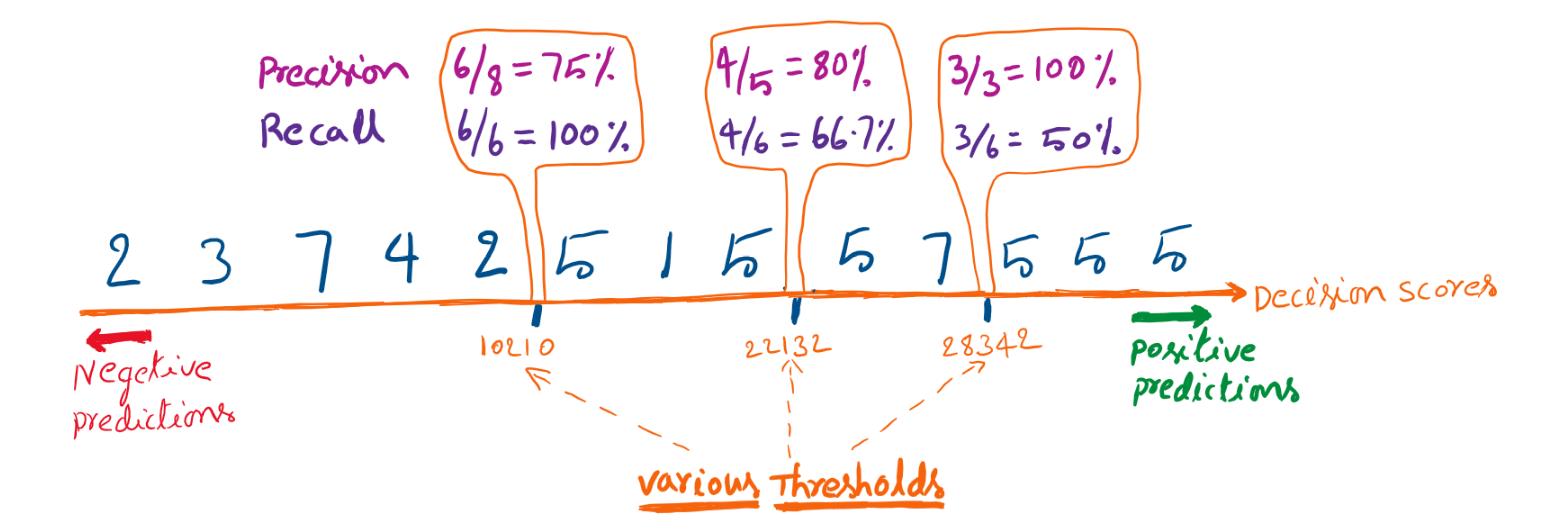 Precision 6/8 = 75% 4/5 = 80% 3/3 = 100%
Recall 6/6 = 100% 4/6 = 66.7% 3/6 = 50%
2 3 7 4 2 5 1 5 5 7 5 5 5
Decision scores
10210 22132 28342
Negetive
predictions
positive
predictions
various Thresholds